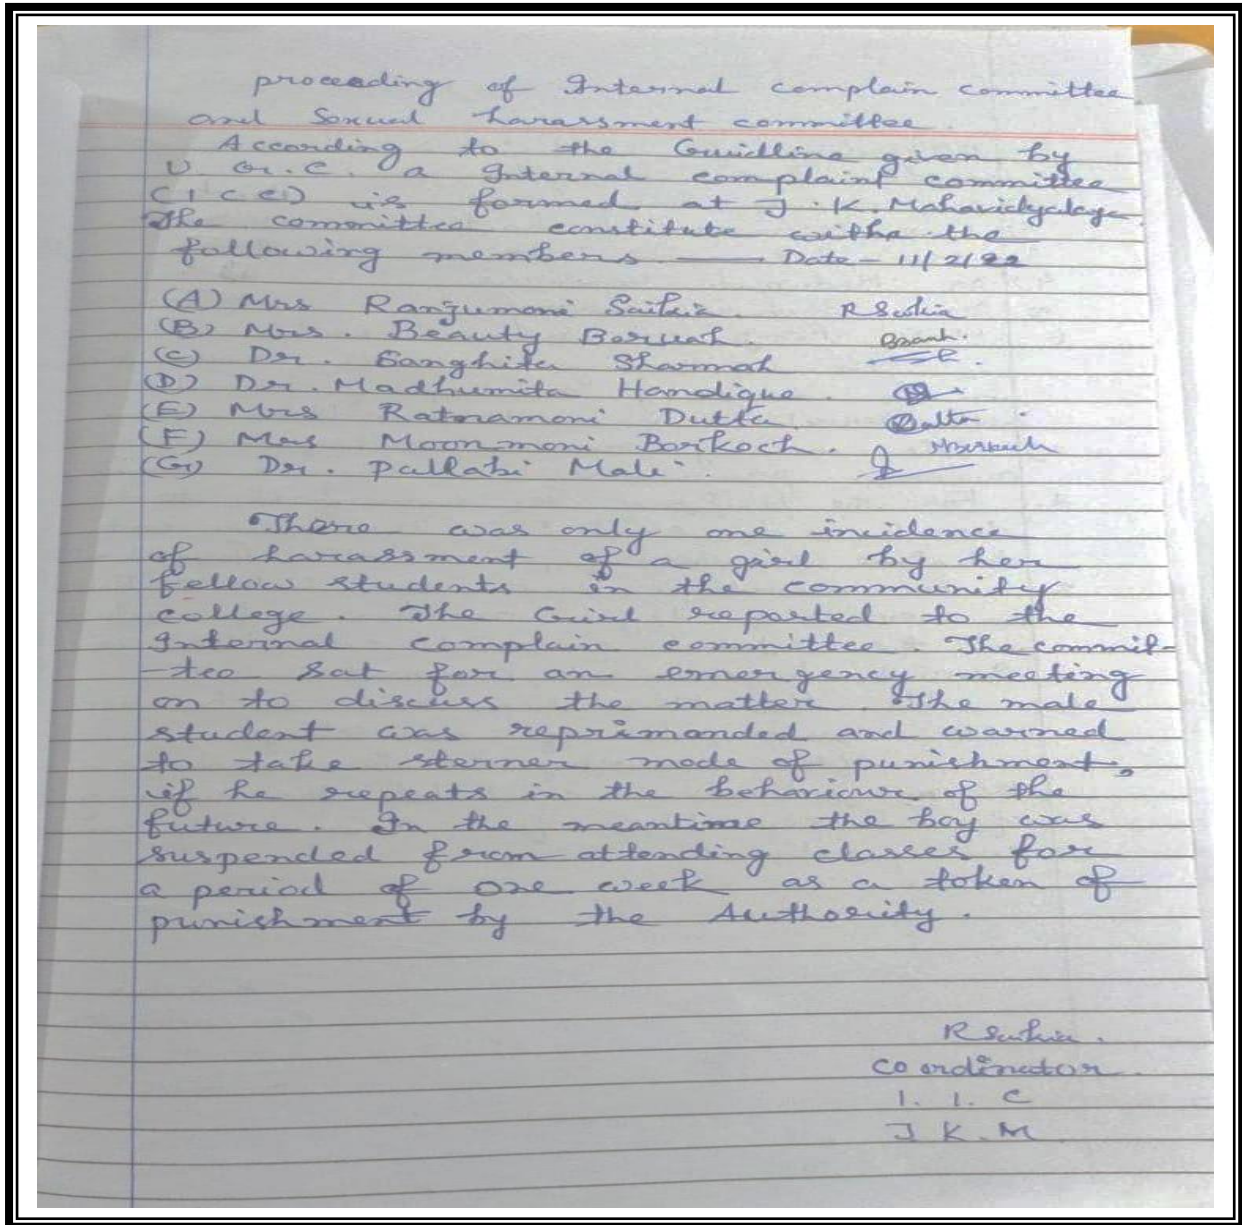 proceeding of Internal complain committee
and Sexual harassment committee.
According to the Guidline given by
U.G.C. a Internal complaint committee
(ICC) is formed at J.K. Mahavidyalaya
The committee constitute withe the
following members — Date - 11/2/22
(A) Mrs Ranjumoni Saikia. R Saikia
(B) Mrs. Beauty Boruah.
(C) Dr. Sanghita Sharmah
(D) Dr. Madhumita Handique.
(E) Mrs Ratnamoni Dutta. Dutta
(F) Mrs Moonmoni Borkoch.
(G) Dr. Pallabi Mali.
There was only one incidence
of harassment of a girl by her
fellow students in the community
college. The Girl reported to the
Internal complain committee. The commit-
-tee sat for an emergency meeting
on to discuss the matter. The male
student was reprimanded and warned
to take sterner mode of punishment,
if he repeats in the behaviour of the
future. In the meantime the boy was
suspended from attending classes for
a period of one week as a token of
punishment by the Authority.
R Saikia.
Coordinator
I. I. C
J K. M